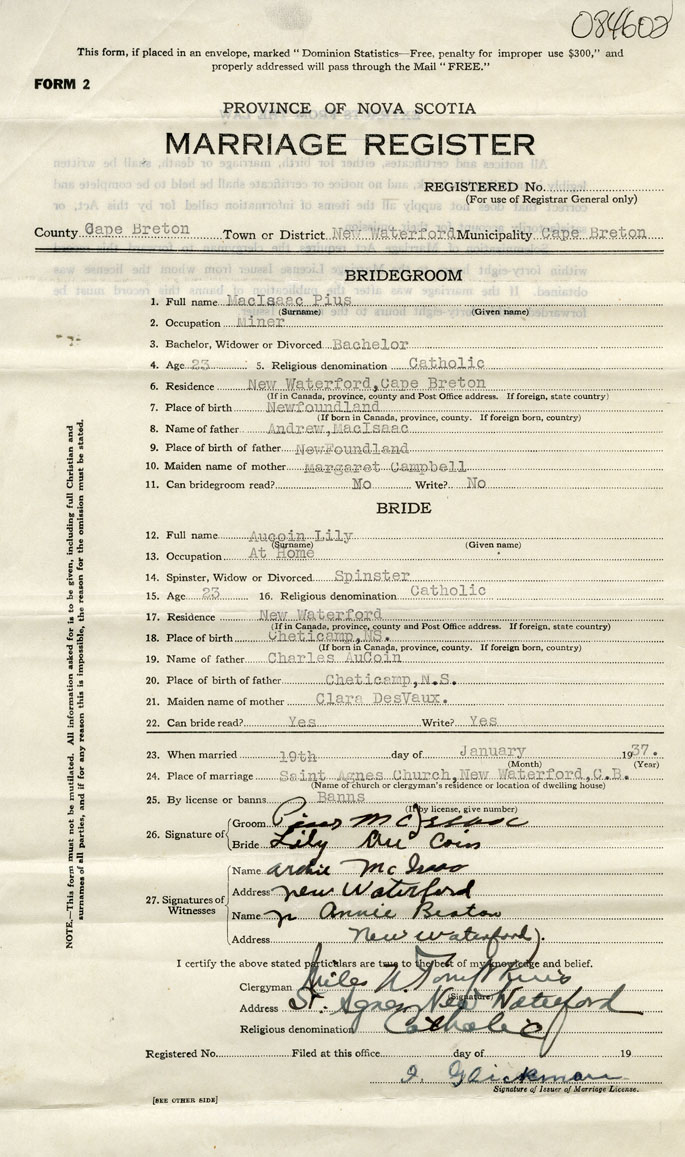 084602
This form, if placed in an envelope, marked " Dominion Statistics—Free, penalty for improper use $300," and
properly addressed will pass through the Mail " FREE."
FORM 2
PROVINCE OF NOVA SCOTIA
MARRIAGE REGISTER
REGISTERED No.
(For use of Registrar General only)
County Cape Breton Town or District New Waterford Municipality Cape Breton
BRIDEGROOM
1. Full name MacIsaac Pius
(Surname) (Given name)
2. Occupation Miner
3. Bachelor, Widower or Divorced Bachelor
4. Age 23 5. Religious denomination Catholic
6. Residence New Waterford,Cape Breton
(If in Canada, province, county and Post Office address. If foreign, state country)
7. Place of birth Newfoundland
(If born in Canada, province, county. If foreign born, country)
8. Name of father Andrew,MacIsaac
9. Place of birth of father NewFoundland
10. Maiden name of mother Margaret Campbell
11. Can bridegroom read? No Write? No
BRIDE
12. Full name Aucoin Lily
(Surname) (Given name)
13. Occupation At Home
14. Spinster, Widow or Divorced Spinster
15. Age 23 16. Religious denomination Catholic
17. Residence New Waterford
(If in Canada, province, county and Post Office address. If foreign, state country)
18. Place of birth Cheticamp,NS.
(If born in Canada, province, county. If foreign born, country)
19. Name of father Charles AuCoin
20. Place of birth of father Cheticamp,N.S.
21. Maiden name of mother Clara DesVaux.
22. Can bride read? Yes Write? Yes
23. When married 19th day of January 1937.
(Month) (Year)
24. Place of marriage Saint Agnes Church,New Waterford,C.B.
(Name of church or clergyman's residence or location of dwelling house)
25. By license or banns Banns
(If by license, give number)
26. Signature of Groom Pius McIsaac
Bride Lily Au Coin
27. Signatures of Witnesses
Name Archie McIsaac
Address New Waterford
Name Annie Beaton
Address New Waterford
I certify the above stated particulars are true to the best of my knowledge and belief.
Clergyman Miles N.
(Signature)
Address St. Agnes New Waterford
Religious denomination Catholic
Registered No. Filed at this office day of 19
Glickman
Signature of Issuer of Marriage License.
[SEE OTHER SIDE]
NOTE.—This form must not be mutilated. All information asked for is to be given, including full Christian and
surnames of all parties, and if for any reason this is impossible, the reason for the omission must be stated.